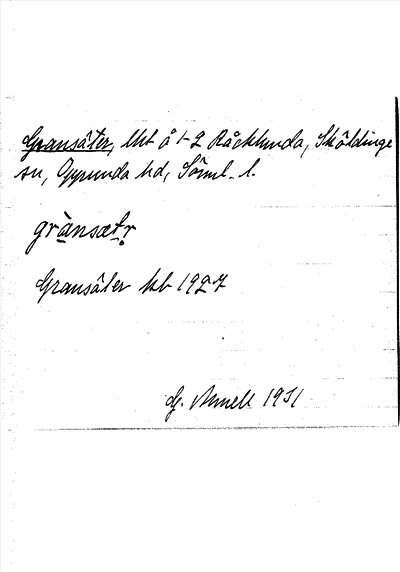 Gransäter, lht å 1-2 Råcklunda, Sköldinge
sn, Oppunda hd, Söml. l.
grànsætr
Gransäter kb 1927
G. Annell 1931